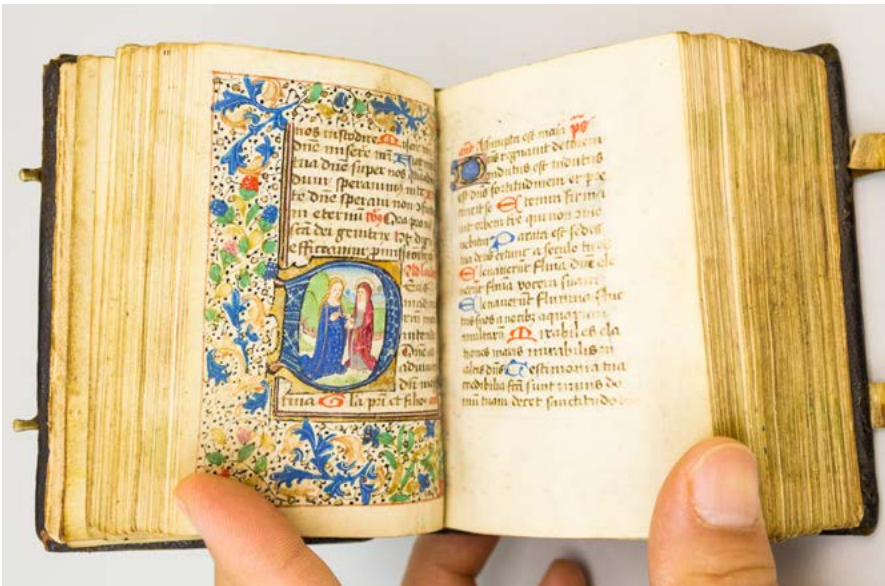 nos custodire
Dñe misere nr̄i
tua dñe super nos
dum speravimus in te
te dñe speravi non
in eternū Ora pro
sc̄a dei genitrix Ut
efficiamur
Ad laudes
Deus
in adiu
Dñe ad
adiuvan
Gl̄a pr̄i et filio
Assumpta est maria ps
Dn̄s regnavit decorem
indutus est indutus
est dn̄s fortitudinem et pre
cinxit se Etenim firma
vit orbem tr̄e qui non
mebitur Parata est sedes
tua deus extunc a seculo tu es
Elevaverūt flūia dn̄e ele
verūt flūia vocem suam
Elevaverūt flumina fluc
tus suos a vocibꝫ aquarum
multarū Mirabiles ela
tiones maris mirabilis in
altis dn̄s Testimonia tua
credibilia fc̄a sunt nimis do
mū tuam decet sanctitudo